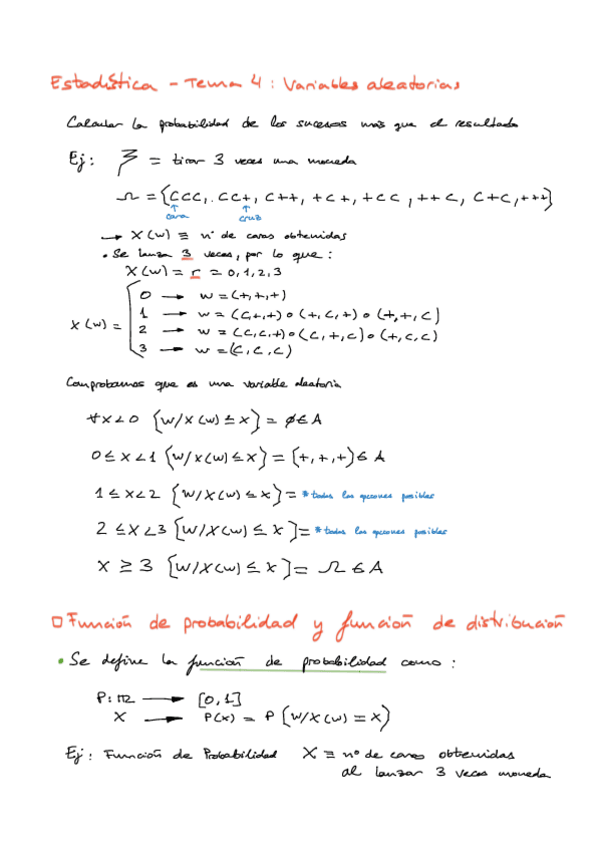 Estadística - Tema 4: Variables aleatorias
Calcular la probabilidad de los sucesos más que el resultado
Ej: ξ = tirar 3 veces una moneda
Ω = {CCC, CC+, C++, +C+, +CC, ++C, C+C, +++}
↑ ↑
cara cruz
→ X(w) ≡ nº de caras obtenidas
• Se lanza 3 veces, por lo que:
X(w) = r = 0,1,2,3
0 → w = (+,+,+)
1 → w = (C,+,+) o (+,C,+) o (+,+,C)
X(w) =
2 → w = (C,C,+) o (C,+,C) o (+,C,C)
3 → w = (C,C,C)
Comprobamos que es una variable aleatoria
∀x<0 {w/X(w) ≤ x} = ∅ ∈ A
0 ≤ x < 1 {w/X(w) ≤ x} = {+,+,+} ∈ A
1 ≤ x < 2 {w/X(w) ≤ x} = * todas las opciones posibles
2 ≤ x < 3 {w/X(w) ≤ x} = * todas las opciones posibles
x ≥ 3 {w/X(w) ≤ x} = Ω ∈ A
□ Función de probabilidad y función de distribución
• Se define la función de probabilidad como:
P: ℝ → [0,1]
X → P(x) = P{w/X(w) = x}
Ej: Función de Probabilidad X ≡ nº de caras obtenidas
al lanzar 3 veces moneda